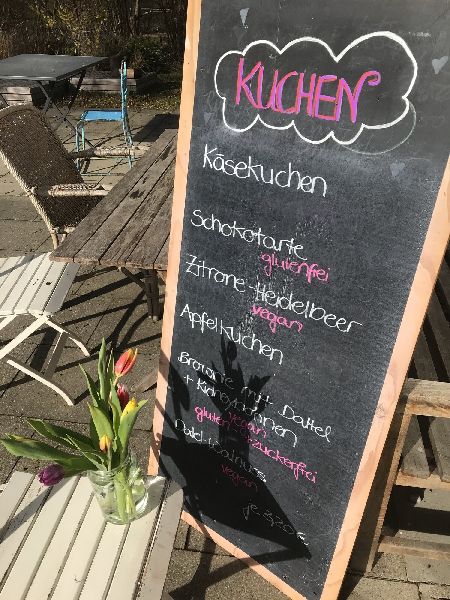 KUCHEN
Käsekuchen
Schokotarte
glutenfrei
Zitrone-Heidelbeer
vegan
Apfelkuchen
Brownie mit Dattel
+ Kidneybohnen
vegan
gluten + zuckerfrei
Dattel-Walnuss
vegan
je 3,20 €